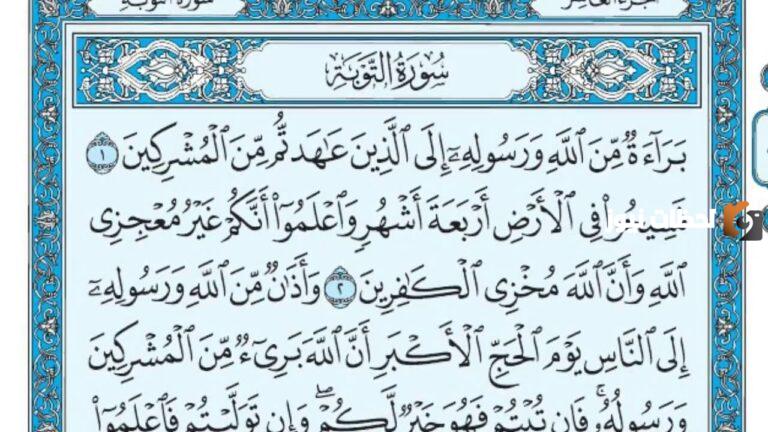 سُورَةُ التَّوْبَةِ
بَرَآءَةٌ مِّنَ ٱللَّهِ وَرَسُولِهِۦٓ إِلَى ٱلَّذِينَ عَٰهَدتُّم مِّنَ ٱلْمُشْرِكِينَ ١
فَسِيحُوا۟ فِى ٱلْأَرْضِ أَرْبَعَةَ أَشْهُرٍ وَٱعْلَمُوٓا۟ أَنَّكُمْ غَيْرُ مُعْجِزِى
لحظات نيوز
ٱللَّهِ وَأَنَّ ٱللَّهَ مُخْزِى ٱلْكَٰفِرِينَ ٢ وَأَذَٰنٌ مِّنَ ٱللَّهِ وَرَسُولِهِۦٓ
إِلَى ٱلنَّاسِ يَوْمَ ٱلْحَجِّ ٱلْأَكْبَرِ أَنَّ ٱللَّهَ بَرِىٓءٌ مِّنَ ٱلْمُشْرِكِينَ
وَرَسُولُهُۥ ۚ فَإِن تُبْتُمْ فَهُوَ خَيْرٌ لَّكُمْ ۖ وَإِن تَوَلَّيْتُمْ فَٱعْلَمُوٓا۟